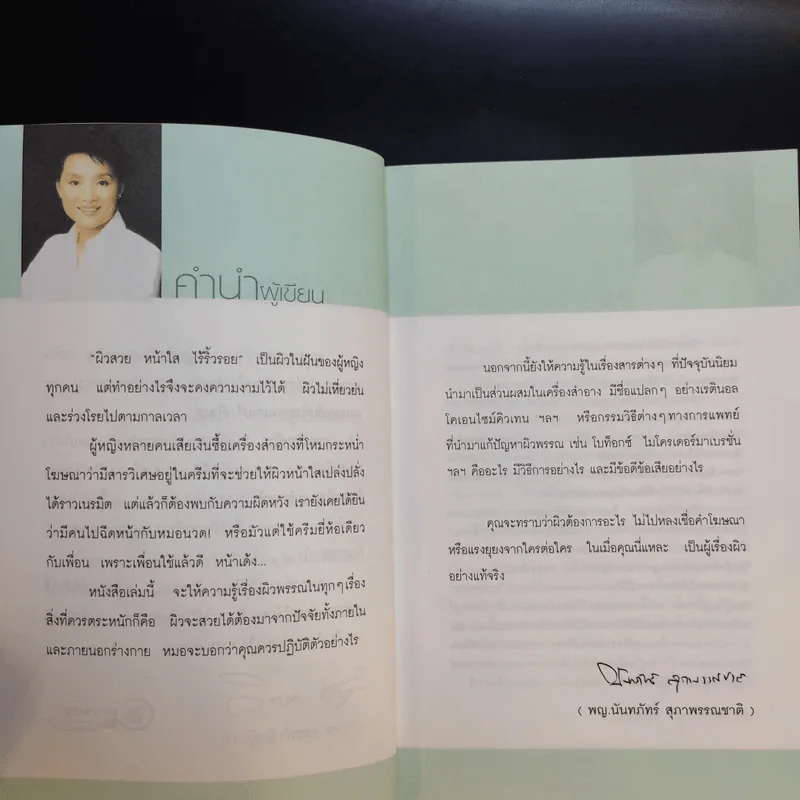 คำนำผู้เขียน
"ผิวสวย หน้าใส ไร้ริ้วรอย" เป็นผิวในฝันของผู้หญิง
ทุกคน แต่ทำอย่างไรจึงจะคงความงามไว้ได้ ผิวไม่เหี่ยวย่น
และร่วงโรยไปตามกาลเวลา
ผู้หญิงหลายคนเสียเงินซื้อเครื่องสำอางที่โหมกระหน่ำ
โฆษณาว่ามีสารวิเศษอยู่ในครีมที่จะช่วยให้ผิวหน้าใสเปล่งปลั่ง
ได้ราวเนรมิต แต่แล้วก็ต้องพบกับความผิดหวัง เรายังเคยได้ยิน
ว่ามีคนไปฉีดหน้ากับหมอนวด! หรือมัวแต่ใช้ครีมยี่ห้อเดียว
กับเพื่อน เพราะเพื่อนใช้แล้วดี หน้าเด้ง...
หนังสือเล่มนี้ จะให้ความรู้เรื่องผิวพรรณในทุกๆเรื่อง
สิ่งที่ควรตระหนักก็คือ ผิวจะสวยได้ต้องมาจากปัจจัยทั้งภายใน
และภายนอกร่างกาย หมอจะบอกว่าคุณควรปฏิบัติตัวอย่างไร
นอกจากนี้ยังให้ความรู้ในเรื่องสารต่างๆ ที่ปัจจุบันนิยม
นำมาเป็นส่วนผสมในเครื่องสำอาง มีชื่อแปลกๆ อย่างเรตินอล
โคเอนไซม์คิวเทน ฯลฯ หรือกรรมวิธีต่างๆทางการแพทย์
ที่นำมาแก้ปัญหาผิวพรรณ เช่น โบท็อกซ์ ไมโครเดอร์มาเบรชั่น
ฯลฯ คืออะไร มีวิธีการอย่างไร และมีข้อดีข้อเสียอย่างไร
คุณจะทราบว่าผิวต้องการอะไร ไม่ไปหลงเชื่อคำโฆษณา
หรือแรงยุยงจากใครต่อใคร ในเมื่อคุณนี่แหละ เป็นผู้เรื่องผิว
อย่างแท้จริง
นันทภัทร์ สุภาพรรณชาติ
( พญ.นันทภัทร์ สุภาพรรณชาติ )